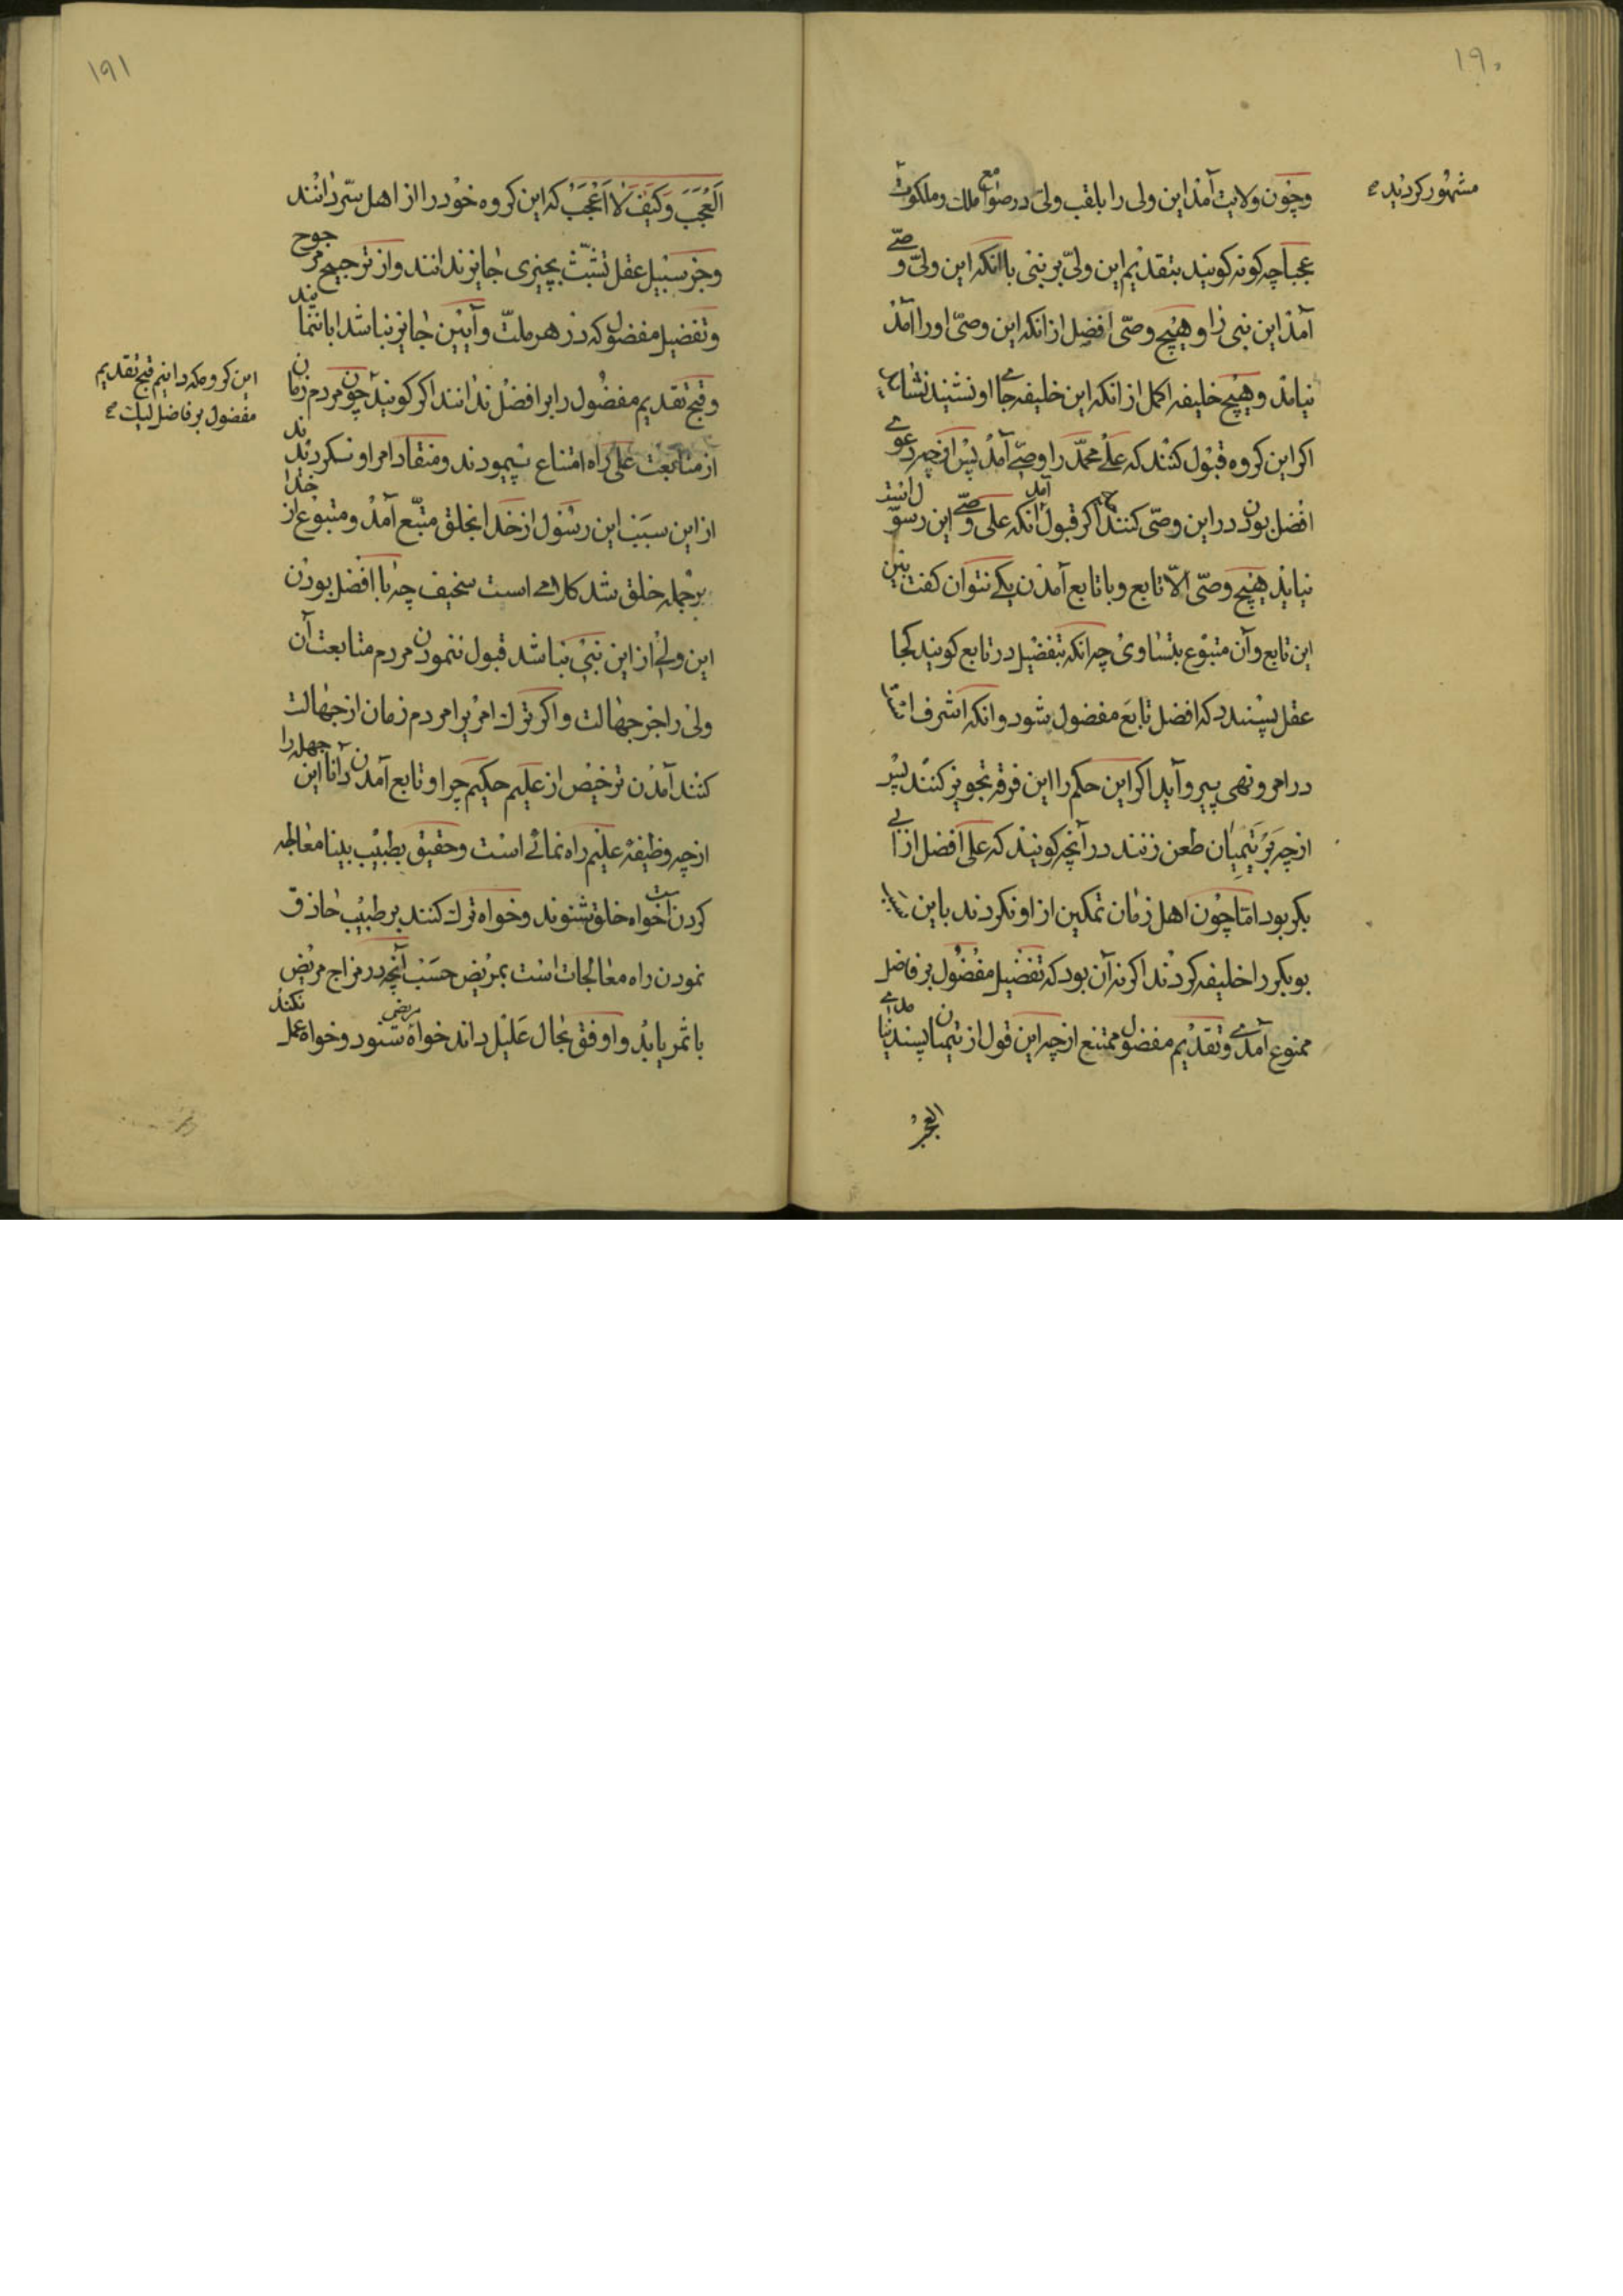 ١٩٠
مشهور کردید صح
وچون ولایت آمد این ولی را بلقب ولی در صوامع ملك وملکوت
عجبا چه کونه کویند بتقدیم این ولیّ بر نبی با انکه این ولیّ وصیّ
آمد این نبی را و هیچ وصّی افضل از انکه این وصیّ اورا آمد
نیاید و هیچ خلیفه اکمل از انکه این خلیفه جای او نشیند نشاید
اکر این کروه قبول کنند که علی محمّد را وصیّ آمد پس از چه دعوی
افضل بودن در این وصّی کنند اکر قبول آمد انکه علی وصیّ این رسول است
نیاید هیچ وصّی الّا تابع وبا تابع آمدن یکی نتوان کفت بین
این تابع وآن متبوع بتساوی چه انکه بتفضیل در تابع کویند کجا
عقل پسندد که افضل تابع مفضول شود وانکه اشرف است
در امر ونهی پیرو آید اکر این حکم را این فرقه تجویز کنند پس
از چه بر تیمیان طعن زنند در آنچه کویند که علی افضل از ابی
بکر بود امّا چون اهل زمان تمکین از او نکردند باین سبب
بوبکر را خلیفه کردند اکر نه آن بود که تفضیل مفضول بر فاضل
ممنوع آمدی وتقدیم مفضول ممتنع از چه این قول از تیمیان پسند نیامدی
العجب
١٩١
اَلْعَجَبَ وَکَیْفَ لاٰ اَعْجَبُ که این کروه خود را از اهل سرّ دانند
وجز سبیل عقل تشبّث بچیزی جایز ندانند واز ترجیح مرجوح
وتفضیل مفضول که در هر ملّت وآیین جایز نباشد ابا ننمایند
وقبح تقدیم مفضول را بر افضل ندانند اکر کویند چون مردم زمان
از متابعت علی راه امتناع پیمودند ومنقاد امر او نکردیدند
از این سبب این رسول از خدا بخلق متبّع آمد ومتبوع از خدا
بر جمله خلق شد کلامی است سخیف چه با افضل بودن
این ولی از این نبی نباشد قبول ننمودن مردم متابعت آن
ولی را جز جهالت واکر ترك امر برا مردم زمان از جهالت
کنند آمدن ترخیص از علیم حکیم چرا وتابع آمدن دانا این جهله را
از چه وظیفه علیم راه نمائی است وحقیق بطبیب بینا معالجه
کردن است خواه خلق شنوند وخواه ترك کنند بر طبیب حاذق
نمودن راه معالجات است بمریض حسب آنچه در مزاج مریض
با ثمر یابد واوفق بحال علیل داند خواه مریض شنود وخواه عمل نکند
این کروه که دانیم قبح تقدیم
مفضول بر فاضل لیك صح